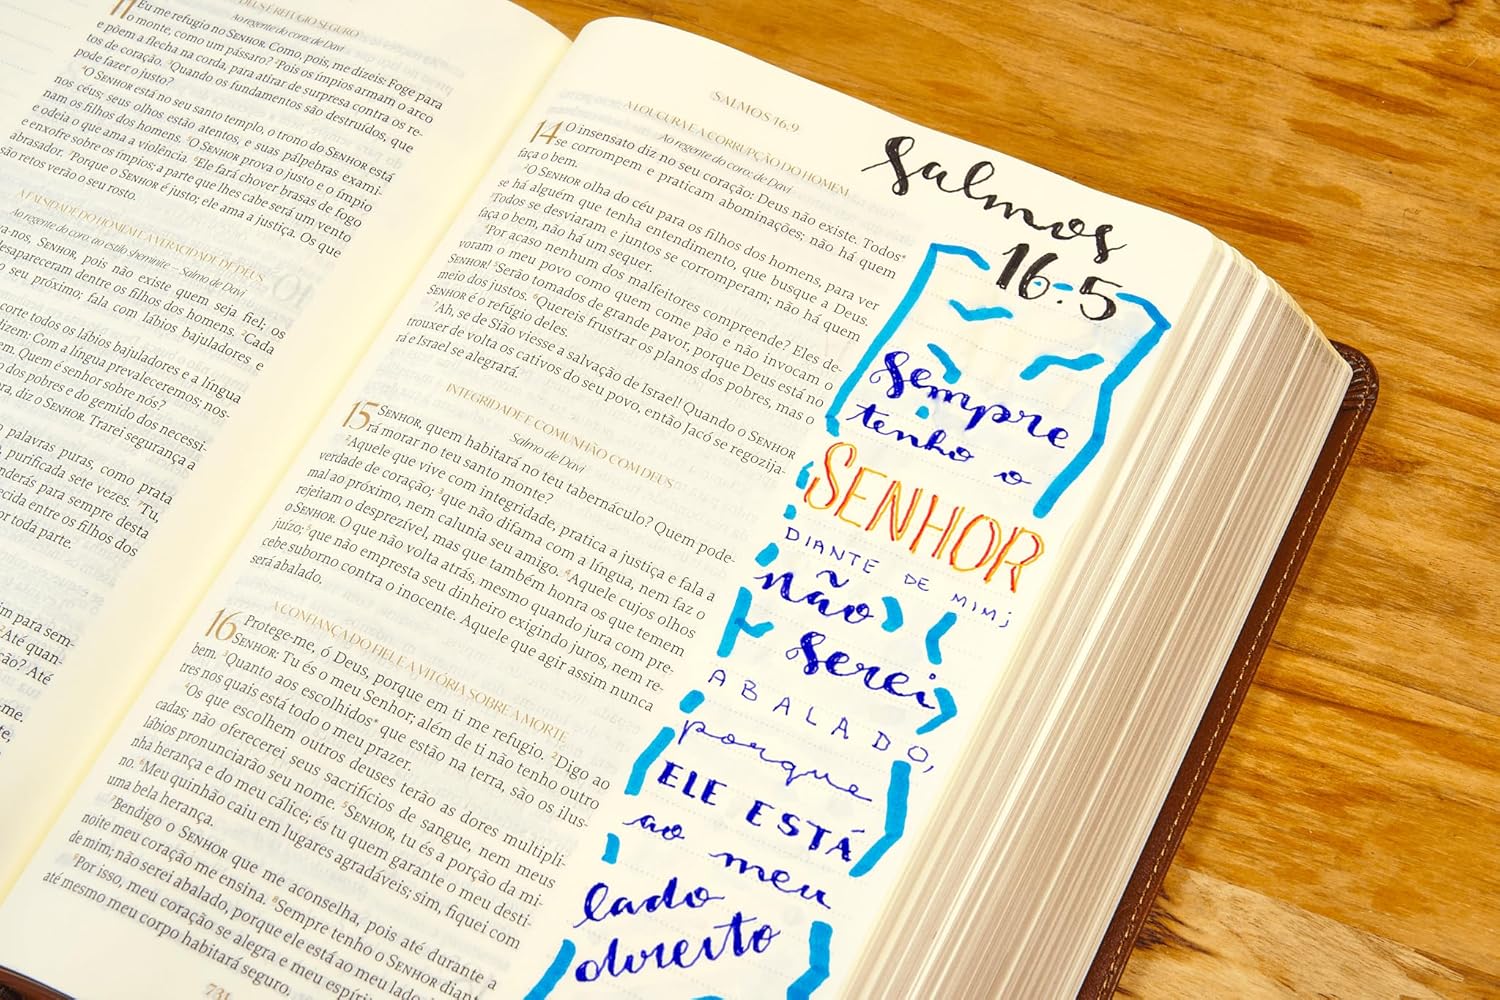 DEUS É REFÚGIO SEGURO
Ao regente do coro: de Davi
11 Eu me refugio no SENHOR. Como, pois, me dizeis: Foge para
o monte, como um pássaro? ²Pois os ímpios armam o arco
e põem a flecha na corda, para atirar de surpresa contra os re-
tos de coração. ³Quando os fundamentos são destruídos, que
pode fazer o justo?
⁴O SENHOR está no seu santo templo, o trono do SENHOR está
nos céus; seus olhos estão atentos, e suas pálpebras exami-
nam os filhos dos homens. ⁵O SENHOR prova o justo e o ímpio
e odeia o que ama a violência. ⁶Ele fará chover brasas de fogo
e enxofre sobre os ímpios; a parte que lhes cabe será um vento
abrasador. ⁷Porque o SENHOR é justo; ele ama a justiça. Os que
são retos verão o seu rosto.
A FALSIDADE DO HOMEM E A VERACIDADE DE DEUS
Ao regente do coro: ao estilo sheminite – Salmo de Davi
-nos, SENHOR, pois não existe quem seja fiel; os
desapareceram dentre os filhos dos homens. ²Cada
seu próximo; fala com lábios bajuladores e
corte todos os lábios bajuladores e a língua
dizem: Com a língua prevaleceremos; nos-
em. Quem é senhor sobre nós?
dos pobres e do gemido dos necessi-
ra, diz o SENHOR. Trarei segurança a
palavras puras, como prata
purificada sete vezes. ⁷Tu,
enderás para sempre desta
ecida entre os filhos dos
or toda parte.
m para sem-
²Até quan-
ção? Até
-me.
SALMOS 16.9
A LOUCURA E A CORRUPÇÃO DO HOMEM
Ao regente do coro: de Davi
14 O insensato diz no seu coração: Deus não existe. Todos*
se corrompem e praticam abominações; não há quem
faça o bem.
²O SENHOR olha do céu para os filhos dos homens, para ver
se há alguém que tenha entendimento, que busque a Deus.
³Todos se desviaram e juntos se corromperam; não há quem
faça o bem, não há um sequer.
⁴Por acaso nenhum dos malfeitores compreende? Eles de-
voram o meu povo como quem come pão e não invocam o
SENHOR! ⁵Serão tomados de grande pavor, porque Deus está no
meio dos justos. ⁶Quereis frustrar os planos dos pobres, mas o
SENHOR é o refúgio deles.
⁷Ah, se de Sião viesse a salvação de Israel! Quando o SENHOR
trouxer de volta os cativos do seu povo, então Jacó se regozija-
rá e Israel se alegrará.
INTEGRIDADE E COMUNHÃO COM DEUS
Salmo de Davi
15 SENHOR, quem habitará no teu tabernáculo? Quem pode-
rá morar no teu santo monte?
²Aquele que vive com integridade, pratica a justiça e fala a
verdade de coração; ³que não difama com a língua, nem faz o
mal ao próximo, nem calunia seu amigo. ⁴Aquele cujos olhos
rejeitam o desprezível, mas que também honra os que temem
o SENHOR. O que não volta atrás, mesmo quando jura com pre-
juízo; ⁵que não empresta seu dinheiro exigindo juros, nem re-
cebe suborno contra o inocente. Aquele que agir assim nunca
será abalado.
A CONFIANÇA DO FIEL E A VITÓRIA SOBRE A MORTE
16 Protege-me, ó Deus, porque em ti me refugio. ²Digo ao
SENHOR: Tu és o meu Senhor; além de ti não tenho outro
bem. ³Quanto aos escolhidos* que estão na terra, são os ilus-
tres nos quais está todo o meu prazer.
⁴Os que escolhem outros deuses terão as dores multipli-
cadas; não oferecerei seus sacrifícios de sangue, nem meus
lábios pronunciarão seu nome. ⁵SENHOR, tu és a porção da mi-
nha herança e do meu cálice; és tu quem garante o meu desti-
no. ⁶Meu quinhão caiu em lugares agradáveis; sim, fiquei com
uma bela herança.
⁷Bendigo o SENHOR que me aconselha, pois até durante a
noite meu coração me ensina. ⁸Sempre tenho o SENHOR diante
de mim; não serei abalado, porque ele está ao meu lado
⁹Por isso, meu coração se alegra e meu espíri
até mesmo meu corpo habitará seguro.
731
Salmos
16:5
Sempre
tenho o
SENHOR
DIANTE DE MIM;
não
serei
ABALADO,
porque
ELE ESTÁ
ao meu
lado
direito